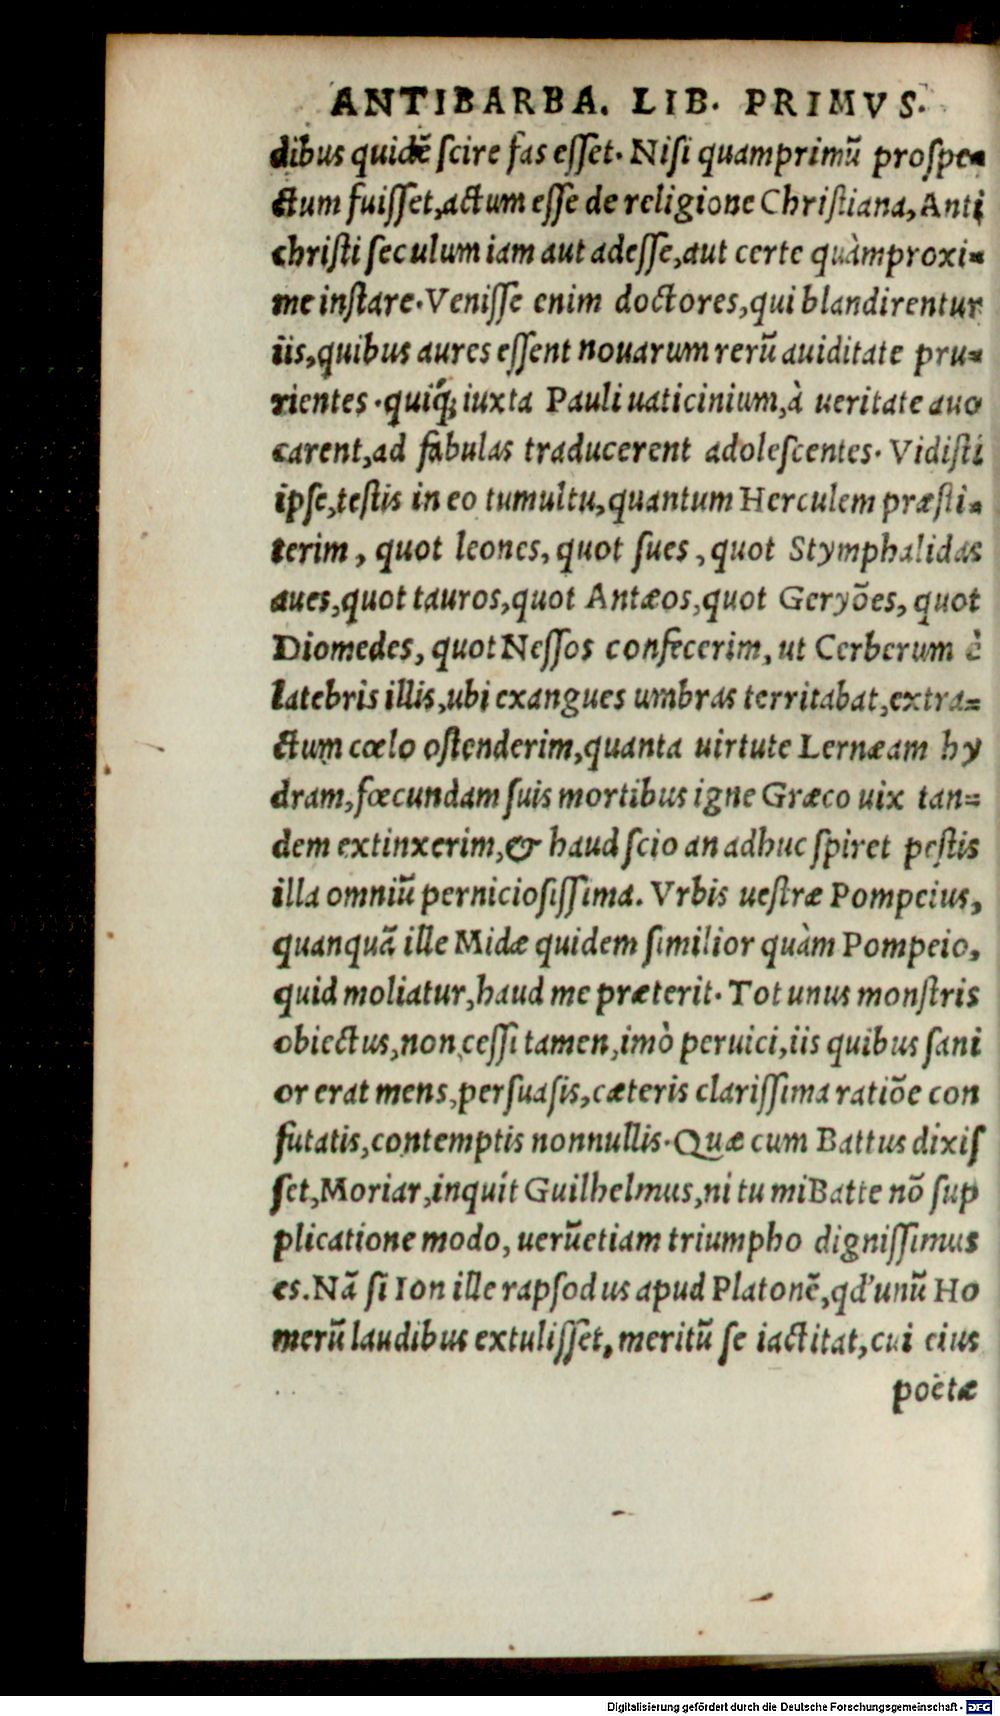 ANTIBARBA. LIB. PRIMVS.
dibus quidē scire fas esset. Nisi quamprimū prospe=
ctum fuisset, actum esse de religione Christiana, Anti
christi seculum iam aut adesse, aut certe quàmproxi=
me instare. Venisse enim doctores, qui blandirentur
iis, quibus aures essent nouarum rerū auiditate pru=
rientes. quiq́; iuxta Pauli uaticinium, à ueritate auo
carent, ad fabulas traducerent adolescentes. Vidisti
ipse, testis in eo tumultu, quantum Herculem præsti=
terim, quot leones, quot sues, quot Stymphalidas
aues, quot tauros, quot Antæos, quot Geryōes, quot
Diomedes, quot Nessos confecerim, ut Cerberum è
latebris illis, ubi exangues umbras territabat, extra=
ctum cœlo ostenderim, quanta uirtute Lernæam hy
dram, fœcundam suis mortibus igne Græco uix tan=
dem extinxerim, & haud scio an adhuc spiret pestis
illa omniū perniciosissima. Vrbis uestræ Pompeius,
quanquā ille Midæ quidem similior quàm Pompeio,
quid moliatur, haud me præterit. Tot unus monstris
obiectus, non cessi tamen, imò peruici, iis quibus sani
or erat mens, persuasis, cæteris clarissima ratiōe con
futatis, contemptis nonnullis. Quæ cum Battus dixis
set, Moriar, inquit Guilhelmus, ni tu mi Batte nō sup
plicatione modo, uerūetiam triumpho dignissimus
es. Nā si Ion ille rapsodus apud Platonē, qd' unū Ho
merū laudibus extulisset, meritū se iactitat, cui eius
poëtæ
Digitalisierung gefördert durch die Deutsche Forschungsgemeinschaft - DFG